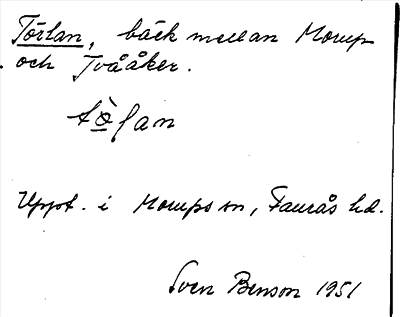 Törlan, bäck mellan Morup
och Tvååker.
Uppt. i Morups sn, Faurås hd.
Sven Benson 1951